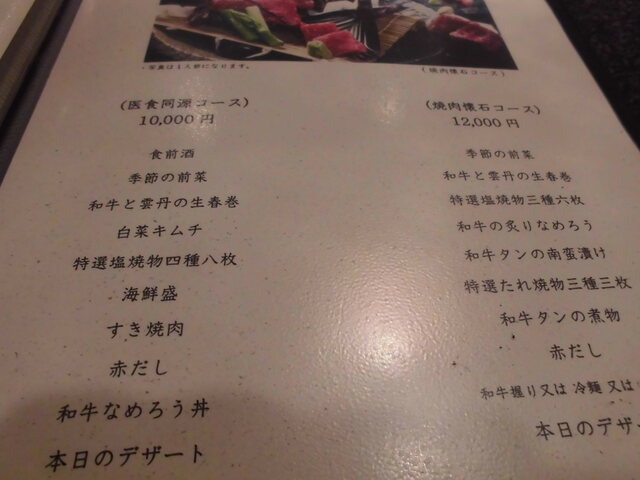 ・写真は1人前になります。
(焼肉懐石コース)
(医食同源コース)
10,000円
食前酒
季節の前菜
和牛と雲丹の生春巻
白菜キムチ
特選塩焼物四種八枚
海鮮盛
すき焼肉
赤だし
和牛なめろう丼
本日のデザート
(焼肉懐石コース)
12,000円
季節の前菜
和牛と雲丹の生春巻
特選塩焼物三種六枚
和牛の炙りなめろう
和牛タンの南蛮漬け
特選たれ焼物三種三枚
和牛タンの煮物
赤だし
和牛握り又は 冷麺 又は
本日のデザ